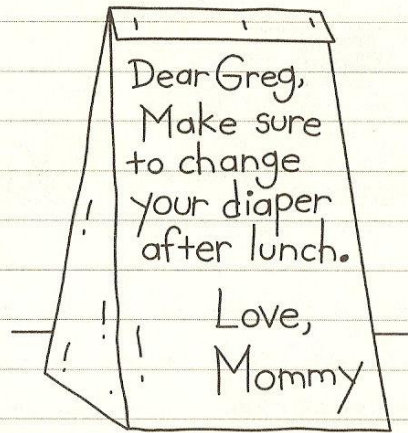 Dear Greg,
Make sure
to change
your diaper
after lunch.
Love,
Mommy